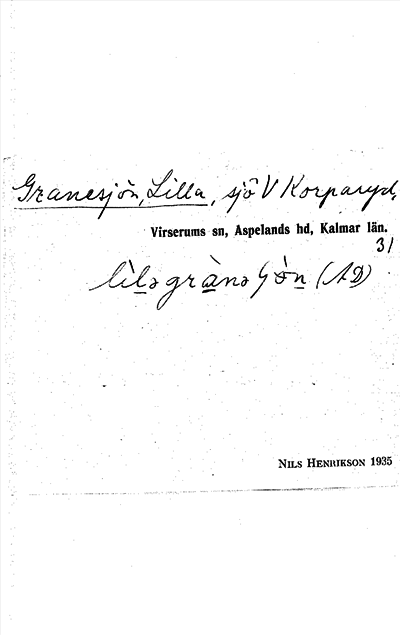 Granesjön, Lilla, sjö V Korparyd,
Virserums sn, Aspelands hd, Kalmar län.
31
NILS HENRIKSON 1935